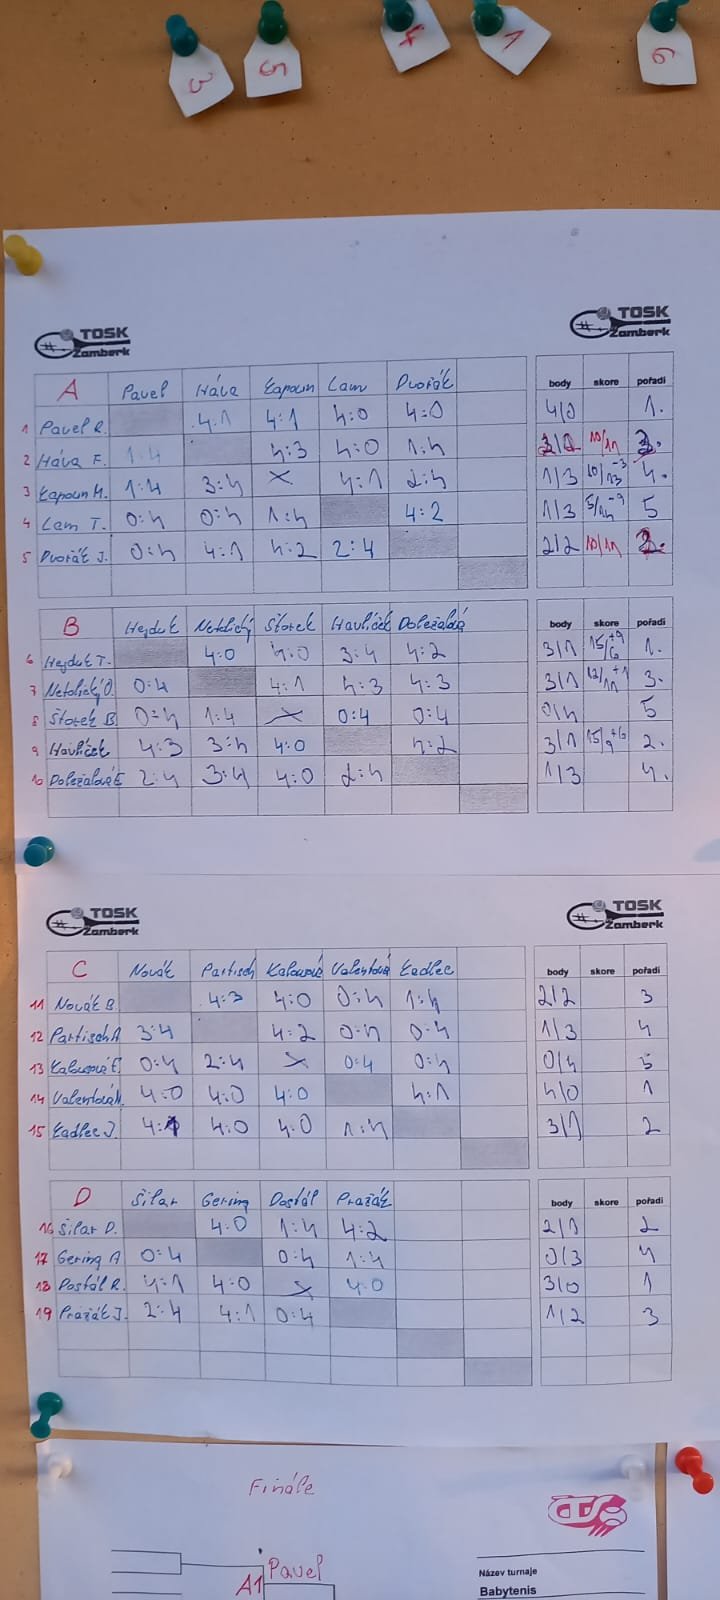 3 5 4 1 6
TOSK Žamberk TOSK Žamberk
A Pavel Háva Łapoun Lam Dvořák body skore pořadí
1 Pavel R. 4:1 4:1 4:0 4:0 4/0 1.
2 Háva F. 1:4 4:3 4:0 1:4 10/11
3 Łapoun M. 1:4 3:4 x 4:1 2:4 1/3 10/13 -3 4.
4 Lam T. 0:4 0:4 1:4 4:2 1/3 5/14 -9 5
5 Dvořák J. 0:4 4:1 4:2 2:4 2/2 10/11
B Hejduk Netolický Štorek Havlíček Doležalová body skore pořadí
6 Hejduk T. 4:0 4:0 3:4 4:2 3/1 15/6 +9 1.
7 Netolický O. 0:4 4:1 4:3 4:3 3/1 12/11 +1 3.
8 Štorek B. 0:4 1:4 x 0:4 0:4 0/4 5
9 Havlíček 4:3 3:4 4:0 4:2 3/1 15/9 +6 2.
10 Doležalová E 2:4 3:4 4:0 2:4 1/3 4.
TOSK Žamberk TOSK Žamberk
C Novák Partisch Kalousová Valentová Ładlec body skore pořadí
11 Novák B. 4:3 4:0 0:4 1:4 2/2 3
12 Partisch A 3:4 4:2 0:4 0:4 1/3 4
13 Kalousová E. 0:4 2:4 x 0:4 0:4 0/4 5
14 Valentová N. 4:0 4:0 4:0 4:1 4/0 1
15 Ładlec J. 4:1 4:0 4:0 1:4 3/1 2
D Šilar Gering Dostál Pražák body skore pořadí
16 Šilar D. 4:0 1:4 4:2 2/1 2
17 Gering A 0:4 0:4 1:4 0/3 4
18 Dostál R. 4:1 4:0 x 4:0 3/0 1
19 Pražák J. 2:4 4:1 0:4 1/2 3
Finále
Pavel
A1
Název turnaje
Babytenis